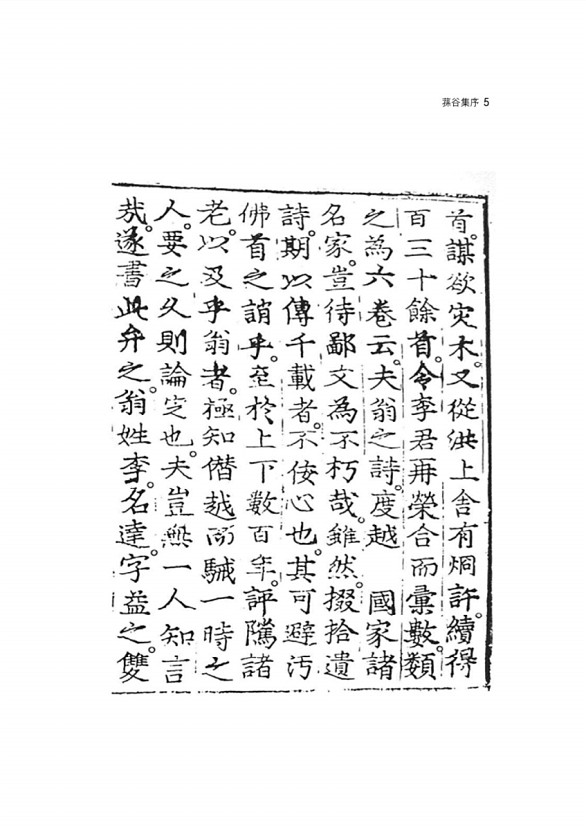 蓀谷集序 5
首。謀欲灾木。又從洪上舍有炯許。續得
百三十餘首。令李君再榮合而彙數類
之為六卷云。夫翁之詩。度越　國家諸
名家。豈待鄙文為不朽哉。雖然。掇拾遺
詩。期以傳千載者。不佞心也。其可避汚
佛首之誚乎。至於上下數百年。評隲諸
老。以及乎翁者。極知僭越而駴一時之
人。要之久則論定也。夫豈無一人知言
哉。遂書此弁之。翁姓李。名達。字益之。雙